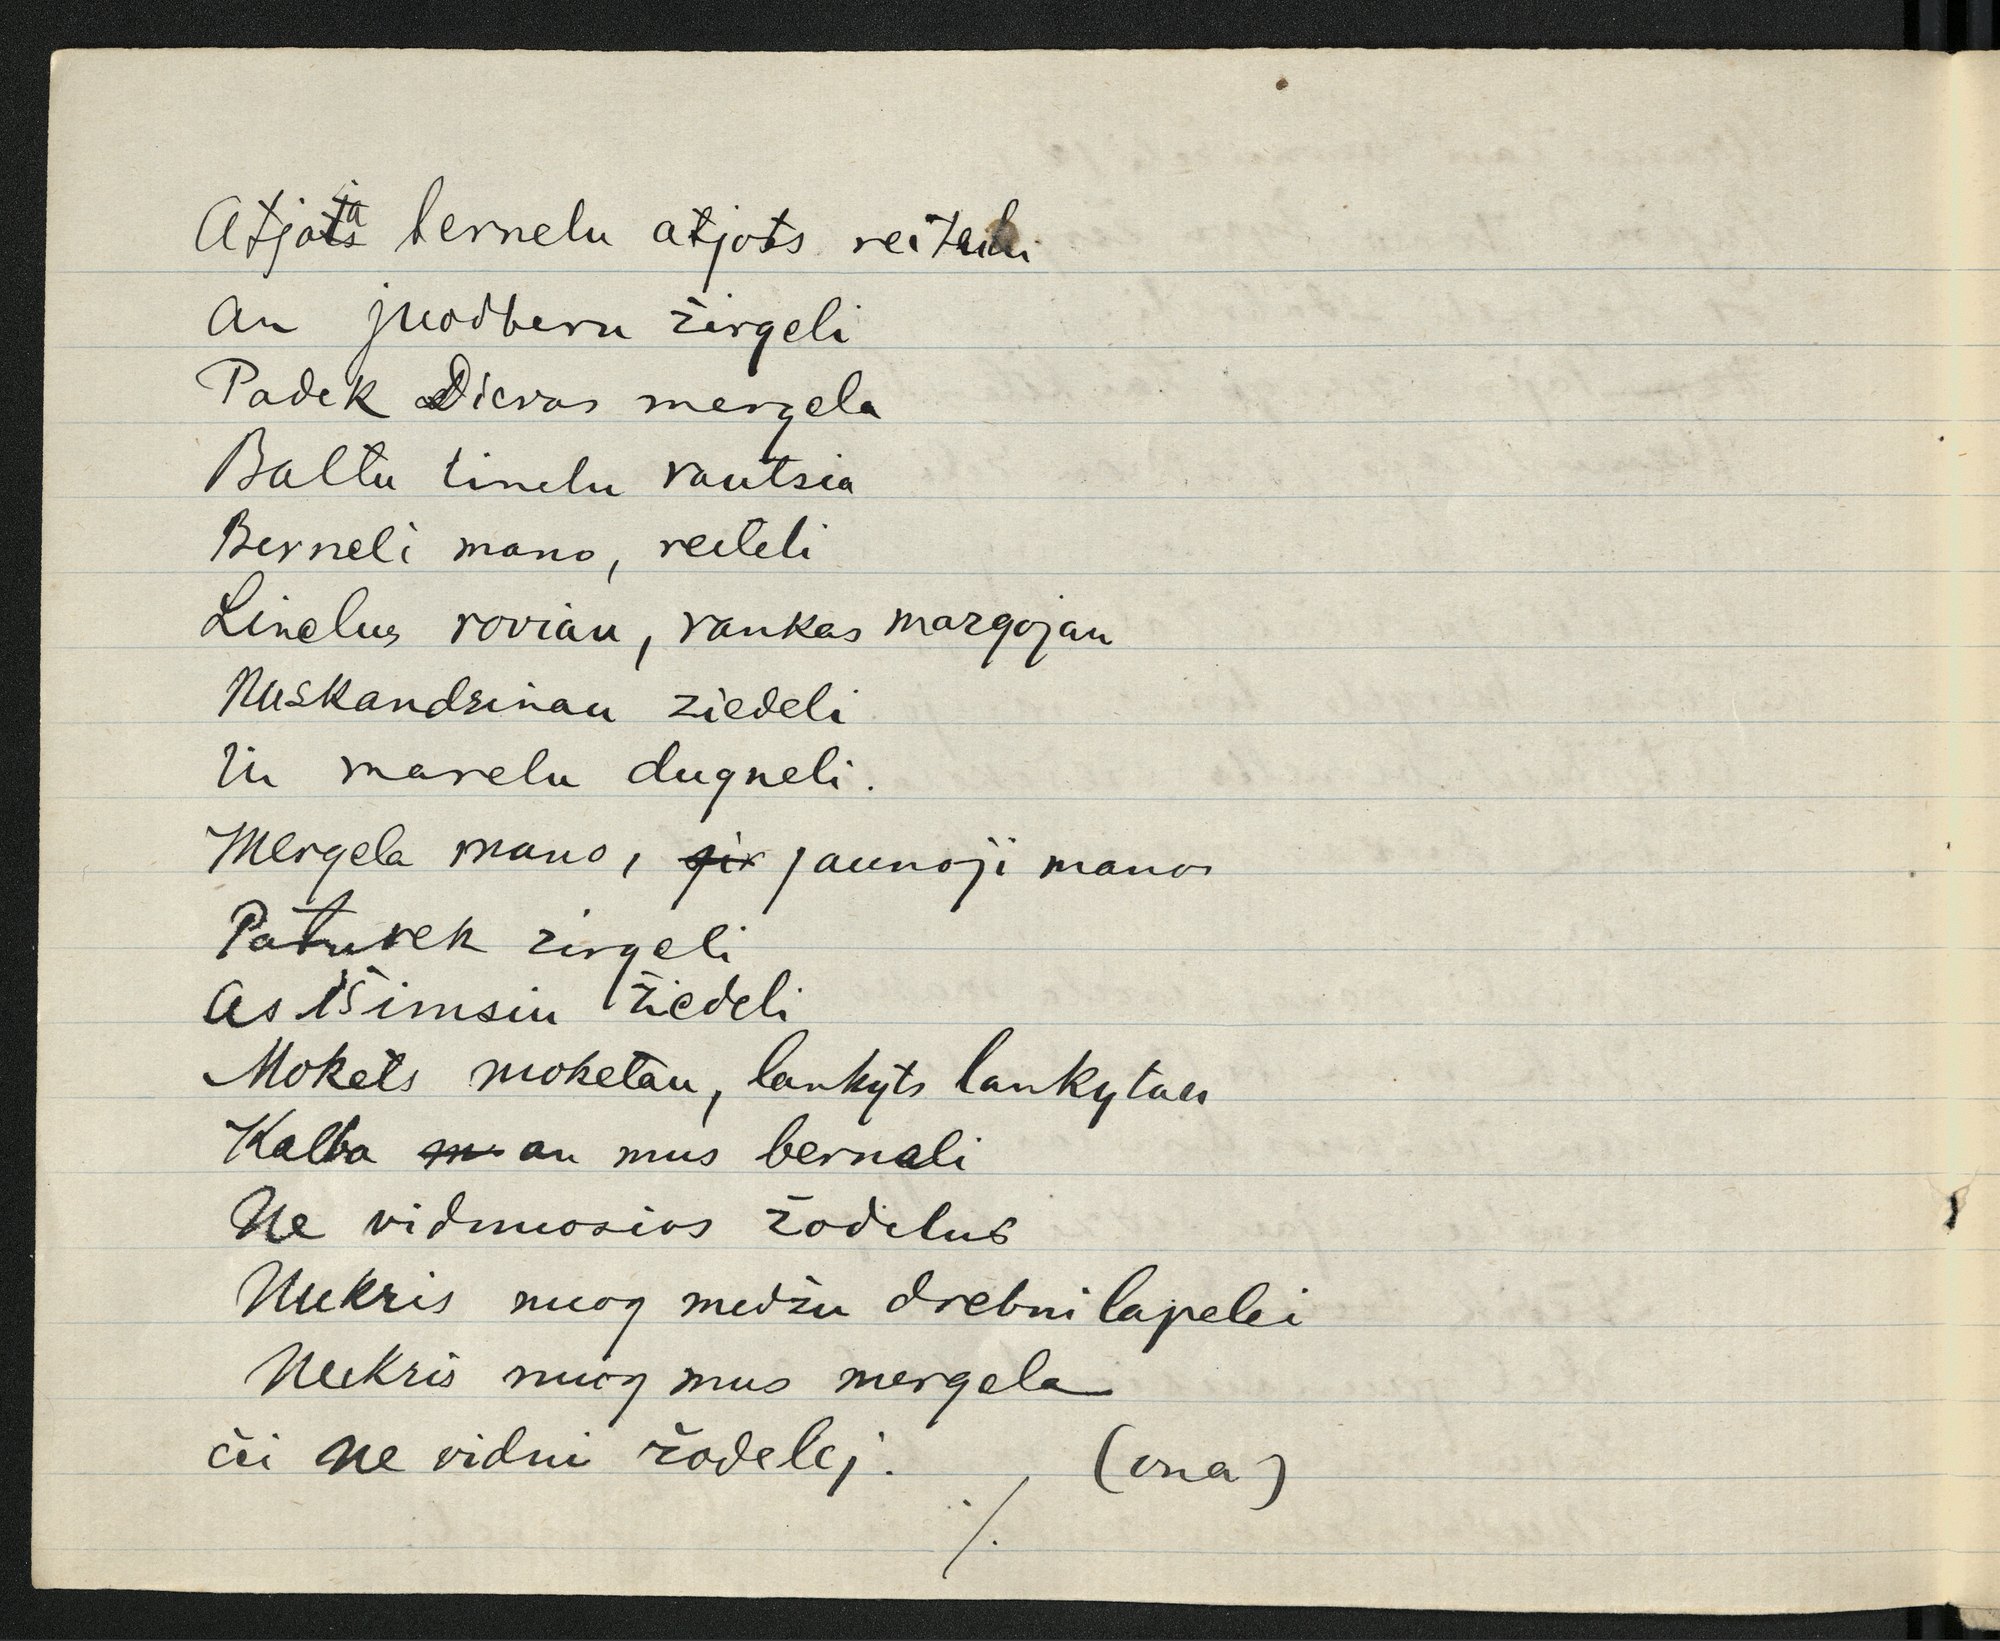 Atjotja bernelu atjots reiteli
an juodberu žirgeli
Padek Dievas mergela
Baltu linelu rautsia
Berneli mano, reiteli
Linelus roviau, rankas mazgojau
Nuskandzinau ziedeli
in marelu dugneli.
Mergela mano, jaunoji mano
Paturek zirgeli
As išimsiu žiedeli
Mokets moketau, lankyts lankytau
Kalba an mus bernali
Ne vidnuosios žodelus
Nukris nuog medžu drebni lapelei
Nukris nuog mus mergela
či ne vidni žodelej. (ona)
./.